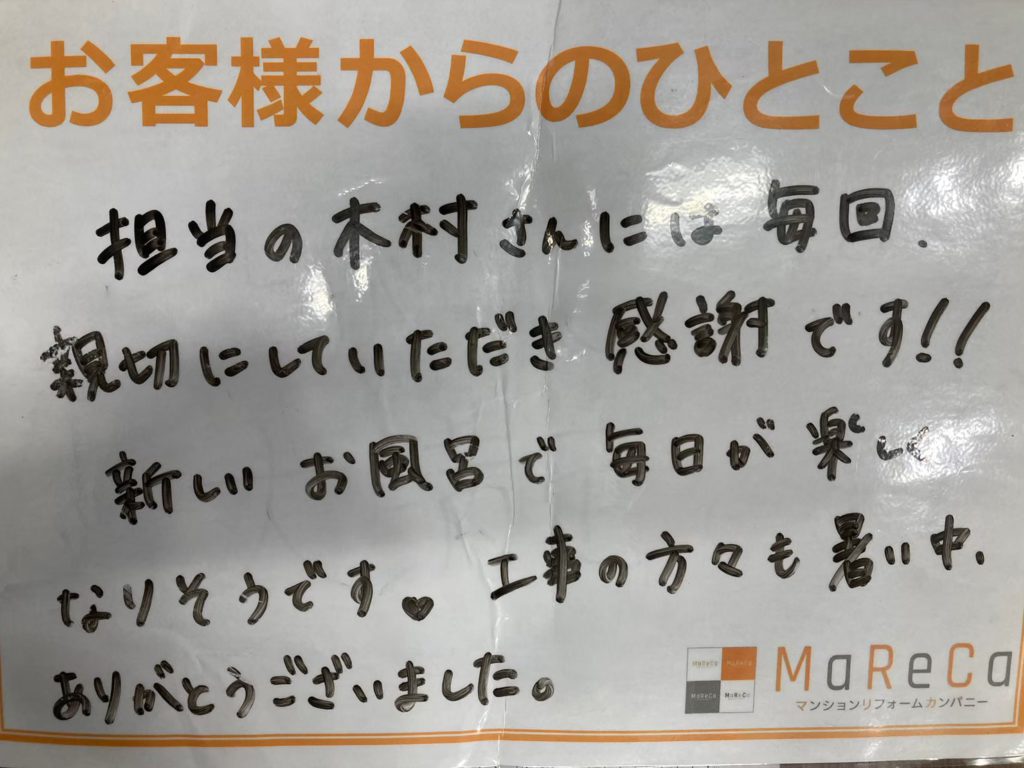 お客様からのひとこと
担当の木村さんには毎回、
親切にしていただき感謝です!!
新しいお風呂で毎日が楽しく
なりそうです♥ 工事の方々も暑い中、
ありがとうございました。
MaReCa MaReCa
MaReCa MaReCa
MaReCa
マンションリフォームカンパニー